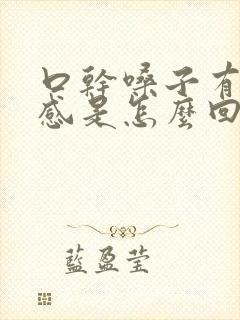 口幹嗓子有
感是怎麼回
藍盈瑩